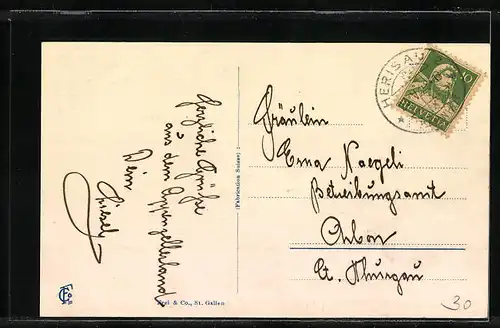 Herzliche Grüsse
aus dem Appenzellerland
Dein
(Fabrication Suisse)
Frei & Co., St. Gallen
HERISAU
10
HELVETIA
Fräulein
Erna Naegeli
Betreibungsamt
Arbon
Ct. Thurgau
30